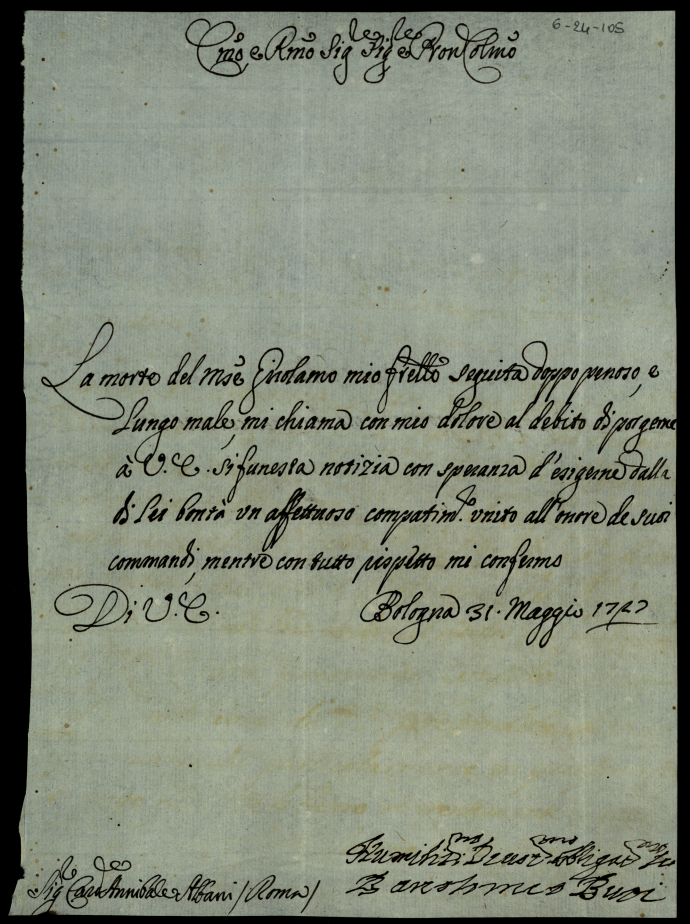 6-24-105
Emo, e Rmo Sigre Sigre e Pron Colmo
La morte del Mse Girolamo mio frello seguita doppo penoso, e
lungo male, mi chiama con mio dolore al debito di porgerne
à V. E. si funesta notizia con speranza d'esigerne dalla
di lei bontà vn affettuoso compatimto. vnito all'onore de suoi
commandi, mentre con tutto rispetto mi confermo
Di V. E. Bologna 31. Maggio 1727
Humilmo Deuotmo Obligatmo
Sigre Carde Annibale Albani / Roma / Buoi